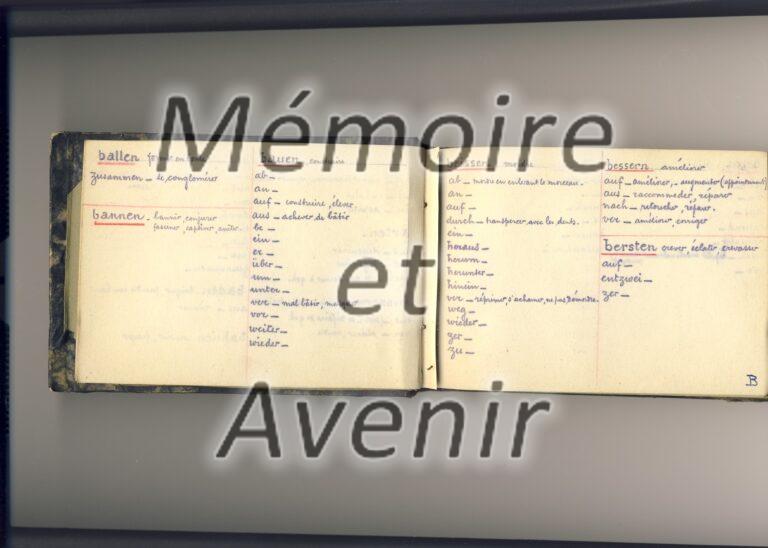 Mémoire
et
Avenir
ballen
zusammen _ se conglomérer
bannen _ bannir, conjurer
fasciner, captiver
bauen construire
ab _
an _
auf _ construire, élever
aus _ achever de bâtir
be _
ein _
er _
über _
um _
unter _
ver _ mal bâtir,
vor _
weiter _
wieder _
mordre
ab _ mordre en enlevant le morceau.
an _
auf _
durch _ transpercer avec les dents.
ein _
heraus _
herum _
herunter _
hinein _
ver _ réprimer, s'acharner, ne pas démordre.
weg _
wieder _
zer _
zu _
bessern améliorer
auf _ améliorer, augmenter (appointement)
aus _ raccommoder, réparer
nach _ retoucher, réparer.
ver _ améliorer, corriger
bersten crever, éclater, crevasser
auf _
entzwei _
zer _
B